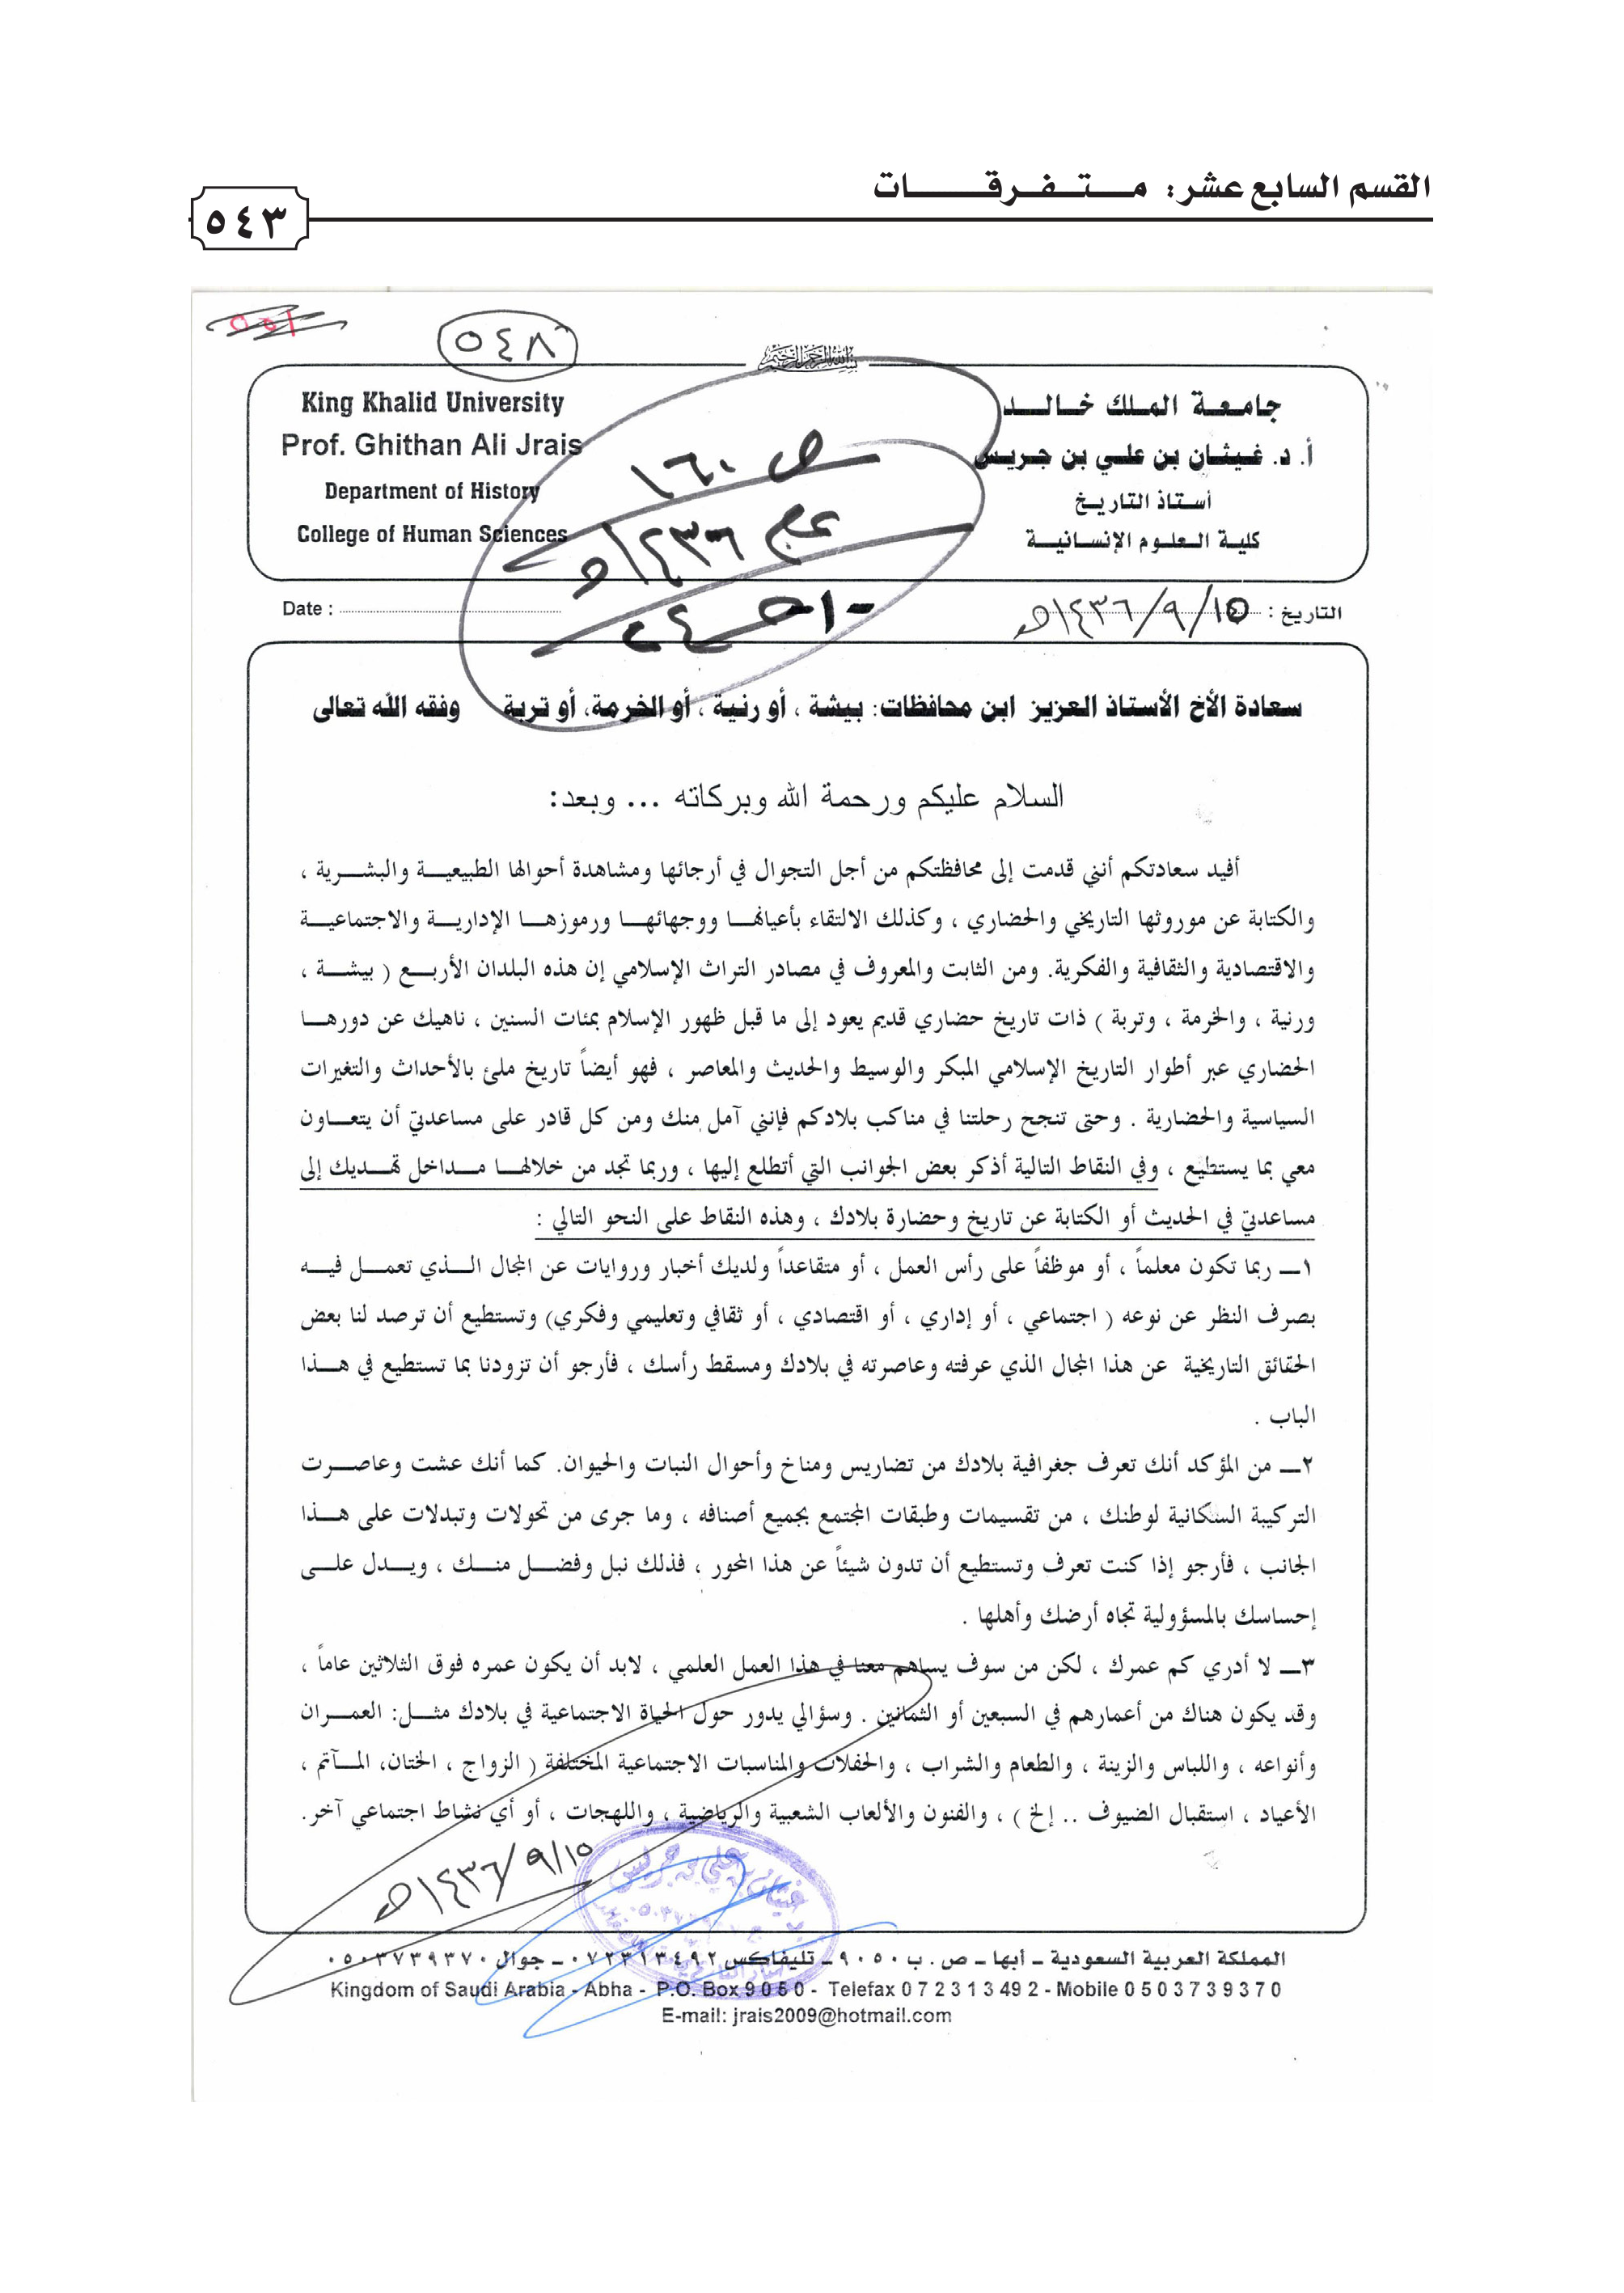 القسم السابع عشر: متفرقات
٥٤٣
٥٤٨
بسم الله الرحمن الرحيم
جامعة الملك خالد
أ. د. غيثان بن علي بن جريس
أستاذ التاريخ
كلية العلوم الإنسانية
King Khalid University
Prof. Ghithan Ali Jrais
Department of History
College of Human Sciences
ص ١٦٠
١٤٣٦هـ
التاريخ : ١٥/٩/١٤٣٦هـ
Date :
سعادة الأخ الأستاذ العزيز ابن محافظات: بيشة ، أو رنية ، أو الخرمة، أو تربة وفقه الله تعالى
السلام عليكم ورحمة الله وبركاته ... وبعد:
أفيد سعادتكم أنني قدمت إلى محافظتكم من أجل التجوال في أرجائها ومشاهدة أحوالها الطبيعية والبشرية ،
والكتابة عن موروثها التاريخي والحضاري ، وكذلك الالتقاء بأعيانها ووجهائها ورموزها الإدارية والاجتماعية
والاقتصادية والثقافية والفكرية. ومن الثابت والمعروف في مصادر التراث الإسلامي إن هذه البلدان الأربع ( بيشة ،
ورنية ، والخرمة ، وتربة ) ذات تاريخ حضاري قديم يعود إلى ما قبل ظهور الإسلام بمئات السنين ، ناهيك عن دورها
الحضاري عبر أطوار التاريخ الإسلامي المبكر والوسيط والحديث والمعاصر ، فهو أيضاً تاريخ ملئ بالأحداث والتغيرات
السياسية والحضارية . وحتى تنجح رحلتنا في مناكب بلادكم فإنني آمل منك ومن كل قادر على مساعدتي أن يتعاون
معي بما يستطيع ، وفي النقاط التالية أذكر بعض الجوانب التي أتطلع إليها ، وربما تجد من خلالها مداخل تهديك إلى
مساعدتي في الحديث أو الكتابة عن تاريخ وحضارة بلادك ، وهذه النقاط على النحو التالي :
١ـ ربما تكون معلماً ، أو موظفاً على رأس العمل ، أو متقاعداً ولديك أخبار وروايات عن المجال الذي تعمل فيه
بصرف النظر عن نوعه ( اجتماعي ، أو إداري ، أو اقتصادي ، أو ثقافي وتعليمي وفكري) وتستطيع أن ترصد لنا بعض
الحقائق التاريخية عن هذا المجال الذي عرفته وعاصرته في بلادك ومسقط رأسك ، فأرجو أن تزودنا بما تستطيع في هذا
الباب .
٢ـ من المؤكد أنك تعرف جغرافية بلادك من تضاريس ومناخ وأحوال النبات والحيوان. كما أنك عشت وعاصرت
التركيبة السكانية لوطنك ، من تقسيمات وطبقات المجتمع بجميع أصنافه ، وما جرى من تحولات وتبدلات على هذا
الجانب ، فأرجو إذا كنت تعرف وتستطيع أن تدون شيئاً عن هذا المحور ، فذلك نبل وفضل منك ، ويدل على
إحساسك بالمسؤولية تجاه أرضك وأهلها .
٣ـ لا أدري كم عمرك ، لكن من سوف يساهم معنا في هذا العمل العلمي ، لابد أن يكون عمره فوق الثلاثين عاماً ،
وقد يكون هناك من أعمارهم في السبعين أو الثمانين . وسؤالي يدور حول الحياة الاجتماعية في بلادك مثل: العمران
وأنواعه ، واللباس والزينة ، والطعام والشراب ، والحفلات والمناسبات الاجتماعية المختلفة ( الزواج ، الختان، المآتم ،
الأعياد ، استقبال الضيوف .. إلخ ) ، والفنون والألعاب الشعبية والرياضية ، واللهجات ، أو أي نشاط اجتماعي آخر.
١٥/٩/١٤٣٦هـ
المملكة العربية السعودية ـ أبها ـ ص . ب ٩٠٥٠ ـ تليفاكس ٠٧٢٣١٣٤٩٢ ـ جوال ٠٥٠٣٧٣٩٣٧٠
Kingdom of Saudi Arabia - Abha - P.O. Box 9 0 5 0 - Telefax 0 7 2 3 1 3 49 2 - Mobile 0 5 0 3 7 3 9 3 7 0
E-mail: jrais2009@hotmail.com